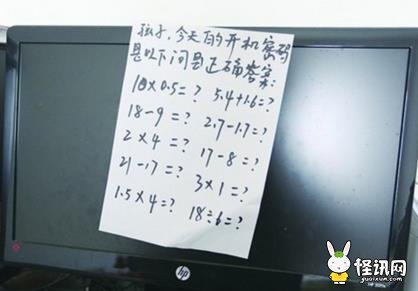 孩子,今天的开机密码
是以下问题正确答案:
10×0.5=? 5.4+1.6=?
18-9=? 2.7-1.7=?
2×4=? 17-8=?
21-17=? 3×1=?
1.5×4=? 18÷6=?
hp
怪讯网
guaixun.com